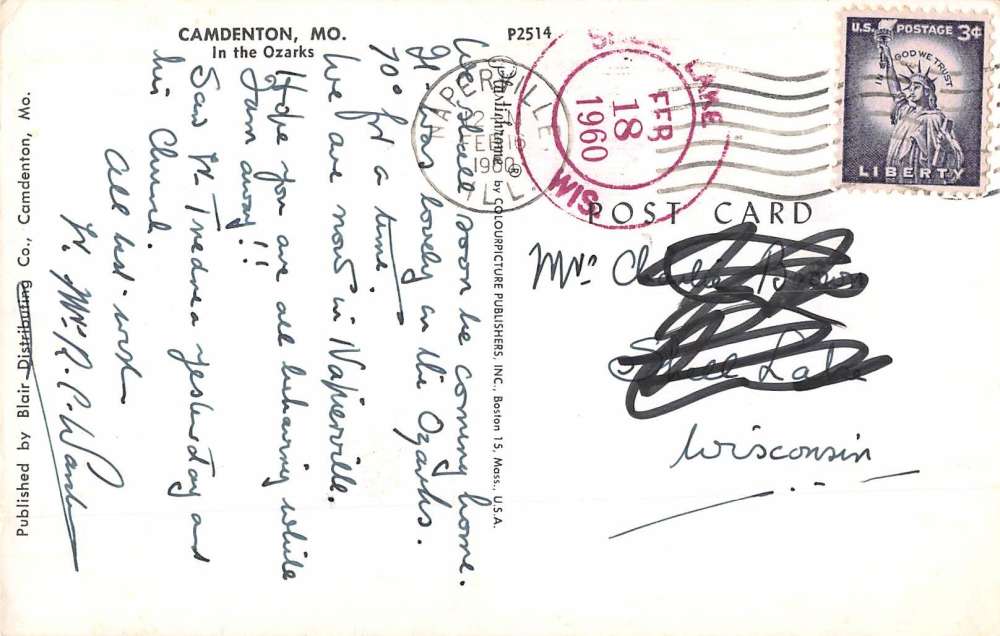 CAMDENTON, MO.
In the Ozarks
P2514
We shall soon be coming home.
It was lovely in the Ozarks.
70° for a time.
We are now in Naperville.
Hope you are all behaving while
I am away!!
Saw Fr. yesterday and
his Church.
All best wishes
Fr. R. C.
Published by Blair Distributing Co., Camdenton, Mo.
Plastichrome ® by COLOURPICTURE PUBLISHERS, INC., Boston 15, Mass., U.S.A.
NAPERVILLE
FEB 16
1960
ILL
SHELL LAKE
FEB
18
1960
WIS
U.S. POSTAGE 3¢
IN GOD WE TRUST
LIBERTY
POST CARD
Mrs Charlie Brown
Shell Lake
Wisconsin